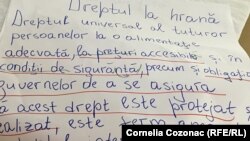 Dreptul la hrană
Dreptul universal al tuturor
persoanelor la o alimentație
adecvată, la prețuri accesibile și în
condiții de siguranță, precum și obligația
guvernelor de a se asigura
că acest drept este protejat
realizat, este
Cornelia Cozonac (RFE/RL)